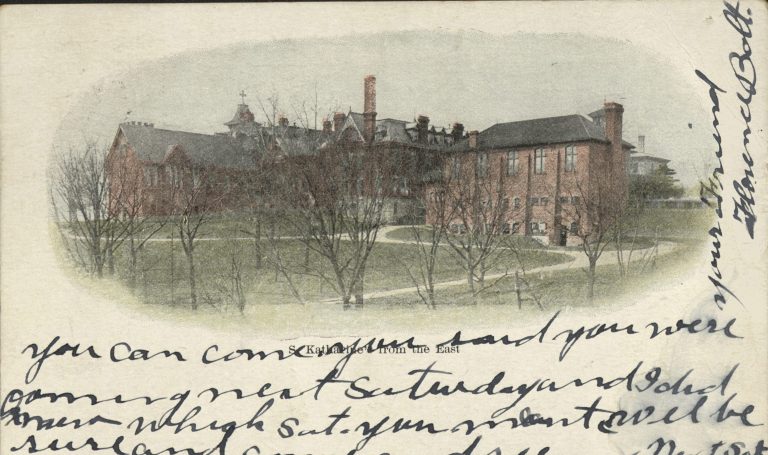 you can come you said you were
S. Katharine's from the East
coming next Saturday and I did
know which Sat. you meant, will be
sure and come and
Next Sat
your Friend
Florence Bolt.